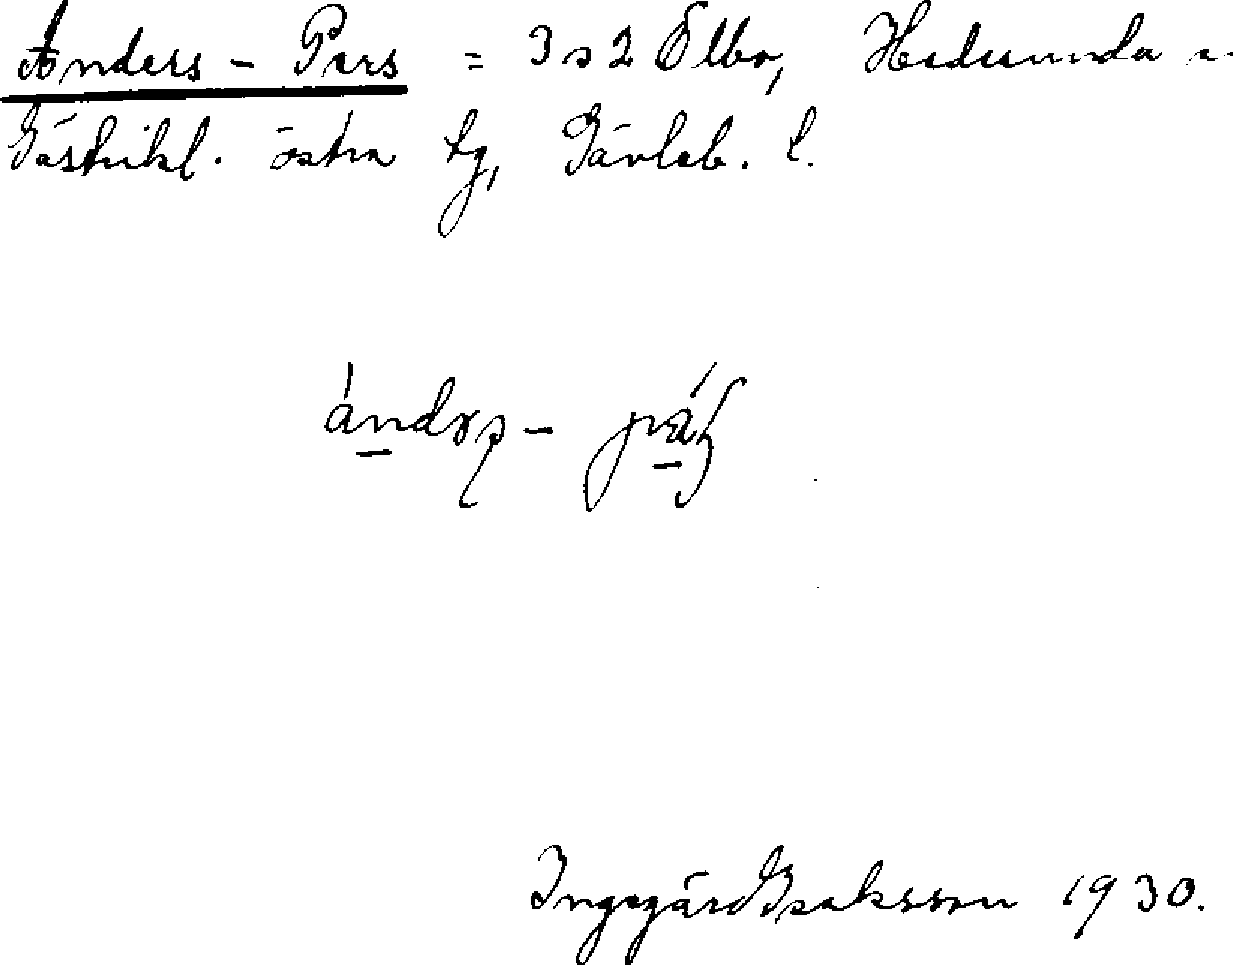 Anders - Pers = 3 o 2 Ölbo, Hedesunda s.
Gästrikl. östra tg, Gävleb. l.
Ingegärd Isaksson 1930.